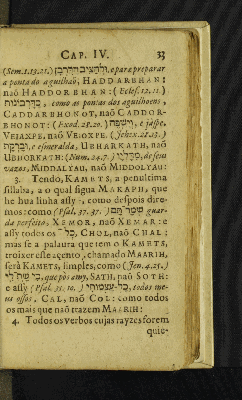 CAP. IV. 33
(Sem.1.13.21.) וּלְהַצִּיב הַדָּרְבָן, e para preparar
a ponta do aguilhaõ, HADDARBHAN:
naõ HADDORBHAN: (Eclef.12.11.)
כַּדָּרְבֹנוֹת, como as pontas dos aguilhoens,
CADDARBHONOT, naõ CADDOR-
BHONOT: (Exod.28.20.) וְיָשְׁפֵה, e jaspe,
VEJASPE, naõ VEJOXPE. (Jehez.28.13.)
וּבָרְקַת, e esmeralda, UBHARKATH, naõ
UBHORKATH: (Num.24.7.) מִדָּלְיָו, de seus
vazos, MIDDALJAU, naõ MIDDOLJAU:
3. Tendo, KAMETS, a penultima
sillaba, a o qual sigua MAKAPH, que
he hua linha assy -, como despois dire-
mos: como (Psal.37.37.) שְׁמָר־תָּם guar-
da perfeito, XEMOR, naõ XEMAR: e
assy todos os כָּל־, CHOL, naõ CHAL;
mas sé a palaura que tem o KAMETS,
troixer esse açento, chamado MAARIH,
será KAMETS, simples, como (Jen.4.25.)
כִּי שָׁת־לִי, que pòs amy, SATH, naõ SOTH:
e assy (Psal.35.10.) כָּל־עַצְמוֹתַי, todos me-
us ossos, CAL, naõ COL: como todos
os mais que naõ trazem MAARIH:
4. Todos os verbos cujas rayzes forem
quie-